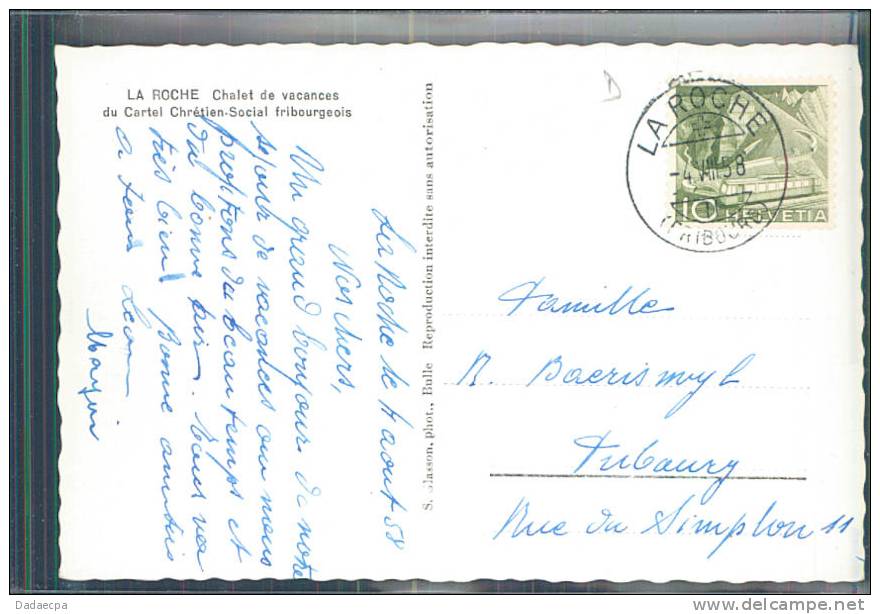 LA ROCHE Chalet de vacances
du Cartel Chrétien-Social fribourgeois
La Roche le 4 aout 58
Nos chers,
Un grand bonjour de notre
séjour de vacances où nous
profitons du beau temps et
du bonne air. Tous va
très bien Bonne amitiés
a tous Léon
S. Glasson, phot., Bulle Reproduction interdite sans autorisation
LA ROCHE
-4.VIII.58
(FRIBOURG)
10 HELVETIA
D
Famille
R. Baerismyl
Fribourg
Rue du Simplon 11
Dadaecpa
http://www.delcampe.net